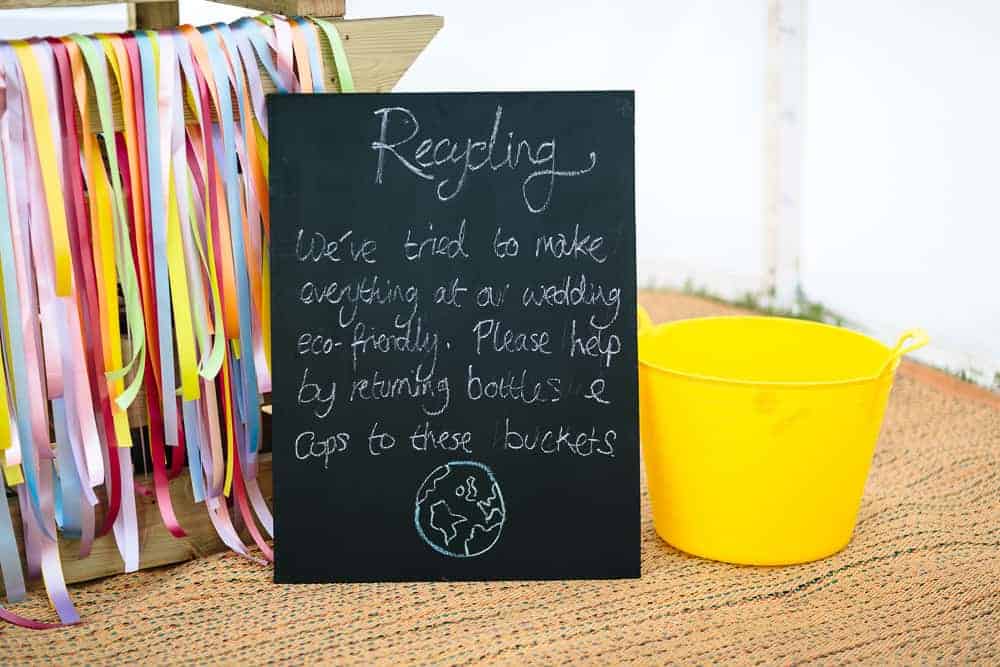 Recycling
We've tried to make
everything at our wedding
eco-friendly. Please help
by returning bottles &
cups to these buckets